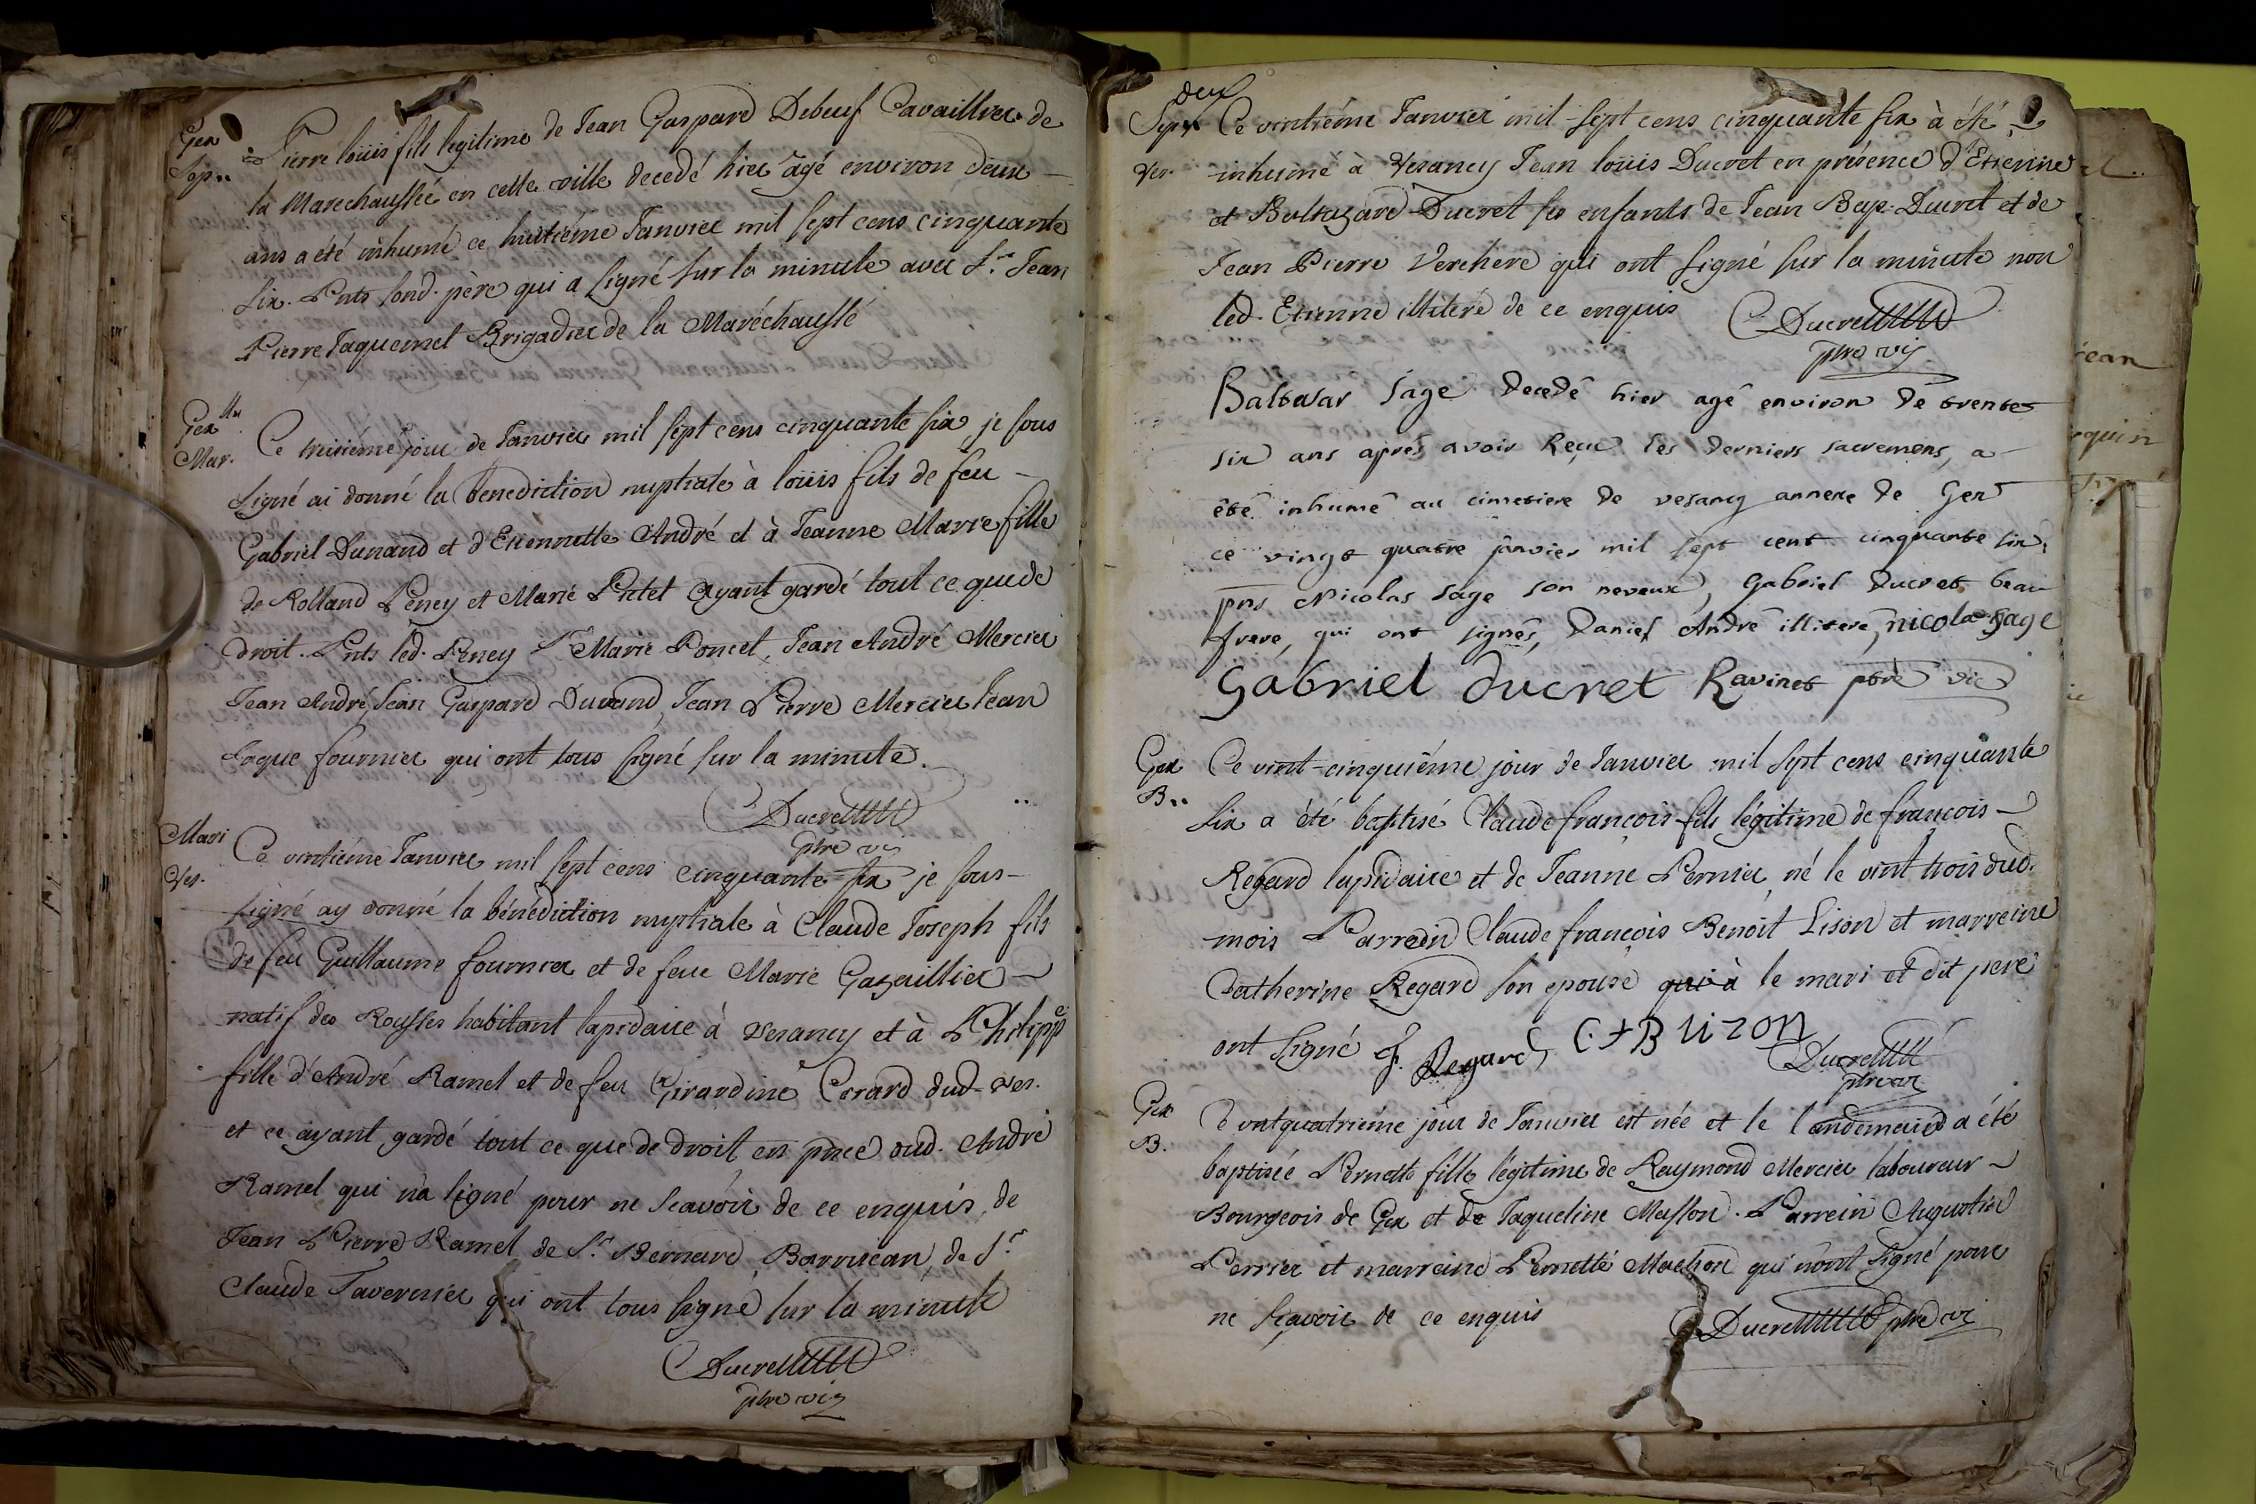 Gex
Sep..
Pierre loüis fils legitime de Jean Gaspard Debeuf Cavaillier de
la Marechaussée en cette ville decedé hier âgé environ deux
ans a été inhumé ce huitiéme Janvier mil sept cens cinquante
six. Pnts lond. père qui a signé sur la minute avec Sr. Jean
Pierre Jaquemet Brigadier de la Maréchaussé
Gex
Mar.
Ce jour de Janvier mil sept cens cinquante six je sous
signé ai donné la benediction nuptiale à loüis fils de feu
Gabriel Dunand et d'Etiennette André et à Jeanne Marie fille
de Rolland Peney et Marie Pictet ayant gardé tout ce que de
droit. Pnts led. Peney Sr Marie Poncet, Jean André Mercier
Jean André, Jean Gaspard Durand, Jean Pierre Mercier Jean
Jaque fournier qui ont tous signé sur la minute.
Ducret
ptre vi
Mari
Ves.
Ce vintiéme Janvier mil sept cens cinquante six je sous-
signé ay donné la bénédiction nuptiale à Claude Joseph fils
de feu Guillaume fournier et de feue Marie Gazaillier
natif des Rousses habitant lapidaire à Vesancy et à Philippe
fille d'André Ramel et de feu Girardine Cerard dud. Ves.
et ce ayant gardé tout ce que de droit en pnce dud. André
Ramel qui n'a signé pour ne scavoir de ce enquis, de
Jean Pierre Ramel de Sr. Bernard Barrucan, de Sr.
Claude Tavernier qui ont tous signé sur la minute
Ducret
ptre vi
deux
Sep
Ves.
Ce vintiéme Janvier mil sept cens cinquante six à été
inhumé à Vesancy Jean loüis Ducret en présence d'Etienne
et Baltazard Ducret ses enfants de Jean Bap. Ducret et de
Jean Pierre Verchere qui ont signé sur la minute non
led. Etienne illiteré de ce enquis
Ducret
ptre vi
Baltasar Sage decedé hier agé environ de trentes
six ans aprés avoir Reçue les derniers sacremens, a
été inhumé au cimetiere de vesancy annexe de Gex
ce vingt quatre janvier mil sept cent cinquante six,
pns Nicolas Sage son neveux, Gabriel Ducret beau
frere, qui ont signés, Daniel André illiteré, nicola sage
Gabriel ducret Ravinet ptre vic
Gex
B..
Ce vint-cinquiéme jour de Janvier mil sept cens cinquante
six a été baptisé Claude françois fils légitime de françois
Regard lapidaire et de Jeanne Pernier né le vint trois dud.
mois Parrein Claude françois Benoit Lison et marreine
Catherine Regard son epouse qui à le mari et dit pere
ont signé f. Regard C.f B Lizon
Ducret
ptre vi
Gex
B.
Le vintquatriéme jour de Janvier est née et le landemain a été
baptisée Pernette fille légitime de Raymond Mercier laboureur
Bourgeois de Gex et de Jaqueline Masson. Parrein Augustin
Perrier et marreine Pernette Machon qui n'ont signé pour
ne sçavoir de ce enquis
Ducret ptre vi
jean